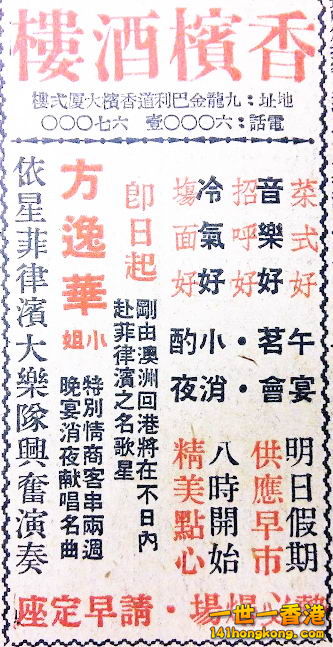 香檳酒樓
地址：九龍金巴利道香檳大廈弍樓
電話：六〇〇〇壹 六七〇〇〇
菜式好
音樂好
招呼好
冷氣好
塲面好
午宴・茗會
小酌・消夜
明日假期
供應早市
八時開始
精美點心
即日起
剛由澳洲回港將在不日內
赴菲律濱之名歌星
方逸華小姐
特別情商客串兩週
晚宴消夜献唱名曲
依星菲律濱大樂隊興奮演奏
場・請早定座
一世一香港
141hongkong.com